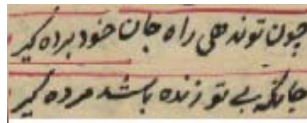 چون تو ندهی راه جان خود برده گیر
جانکه بی تو زنده باشد مرده گیر